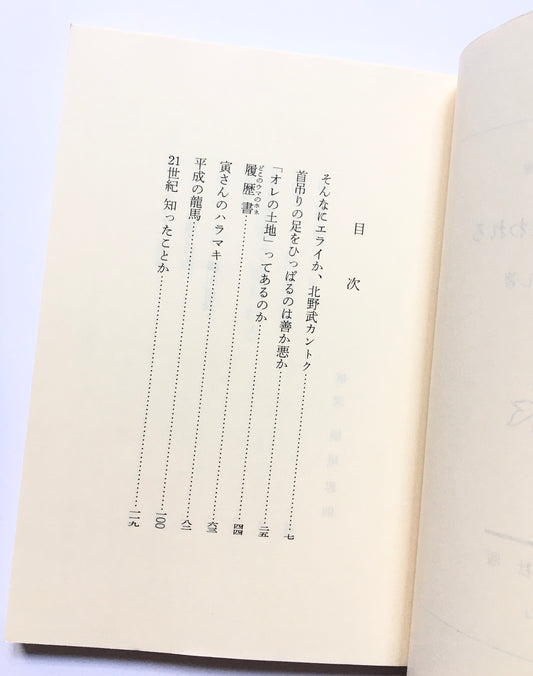 目次
そんなにエライか、北野武カントク…………七
首吊りの足をひっぱるのは善か悪か…………二五
「オレの土地」ってあるのか…………四四
どこのウマのホネ
履歴書…………六三
寅さんのハラマキ…………八二
平成の龍馬…………一〇〇
21世紀 知ったことか…………一一九